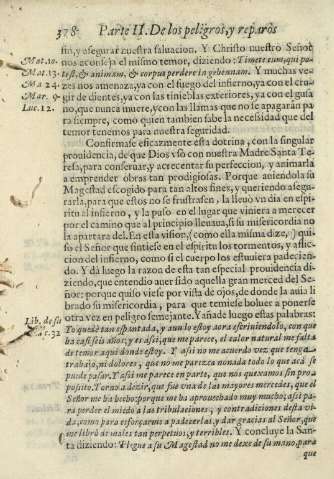 378 Parte II. De los peligros, y reparos
sin, y asegurar nuestra saluacion. Y Christo nuestro Señor
Mat. 10. nos aconseja el mismo temor, diziendo: Timete eum, qui po-
Mat. 13. test, & animam, & corpus perdere in gehennam. Y muchas ve-
Ma 24. zes nos amenaza, ya con el fuego del infierno, ya con el cru-
Mar. 9. gir de dientes, ya con las tinieblas exteriores, ya con el gusa
Luc. 12. no, que nunca muere, y con las llamas que no se apagarán pa
ra siempre, como quien tambien sabe la necesidad que del
temor tenemos para nuestra seguridad.
Confirmase eficazmente esta dotrina, con la singular
prouidencia, de que Dios vsò con nuestra Madre Santa Te-
resa, para conseruar, y acrecentar su perfeccion, y animarla
a emprender obras tan prodigiosas. Porque auiendola su
Magestad escogido para tan altos fines, y queriendo asegu-
rarla, para que estos no se frustrasen, la lleuò vn dia en espi-
ritu al infierno, y la puso en el lugar que viniera a merecer
por el camino que al principio lleuaua, si su misericordia no
la apartara del. En esta vision, (como ella misma dize,) qui-
so el Señor que sintiese en el espiritu los tormentos, y aflic-
cion del infierno, como si el cuerpo los estuuiera padecien-
do. Y dà luego la razon de esta tan especial prouidencia di-
ziendo, que entendio auer sido aquella gran merced del Se-
ñor: porque quiso viese por vista de ojos, de donde la auia li
brado su misericordia, para que temiese boluer a ponerse
otra vez en peligro semejante. Y añade luego estas palabras:
Lib. de su Yo quedè tan espantada, y aun lo estoy aora escriuiendolo, con que
c. 32 ha casi seis años; y es asi, que me parece, el calor natural me falta
de temor aqui donde estoy. Y asi no me acuerdo vez, que tenga
trabajo, ni dolores, que no me parezca nonada todo lo que acà se
puede pasar. Y asi me parece en parte, que nos quexamos sin pro
posito. Torno a dezir, que fue vna de las mayores mercedes, que el
Señor me ha hecho; porque me ha aprouechado muy mucho; asi pa
ra perder el miedo a las tribulaciones, y contradiciones desta vi-
da, como para esforçarme a padecerlas, y dar gracias al Señor, que
me librò de males tan perpetuos, y terribles. Y concluye la San-
ta diziendo: Plegue a su Magestad no me dexe de su mano, para
que